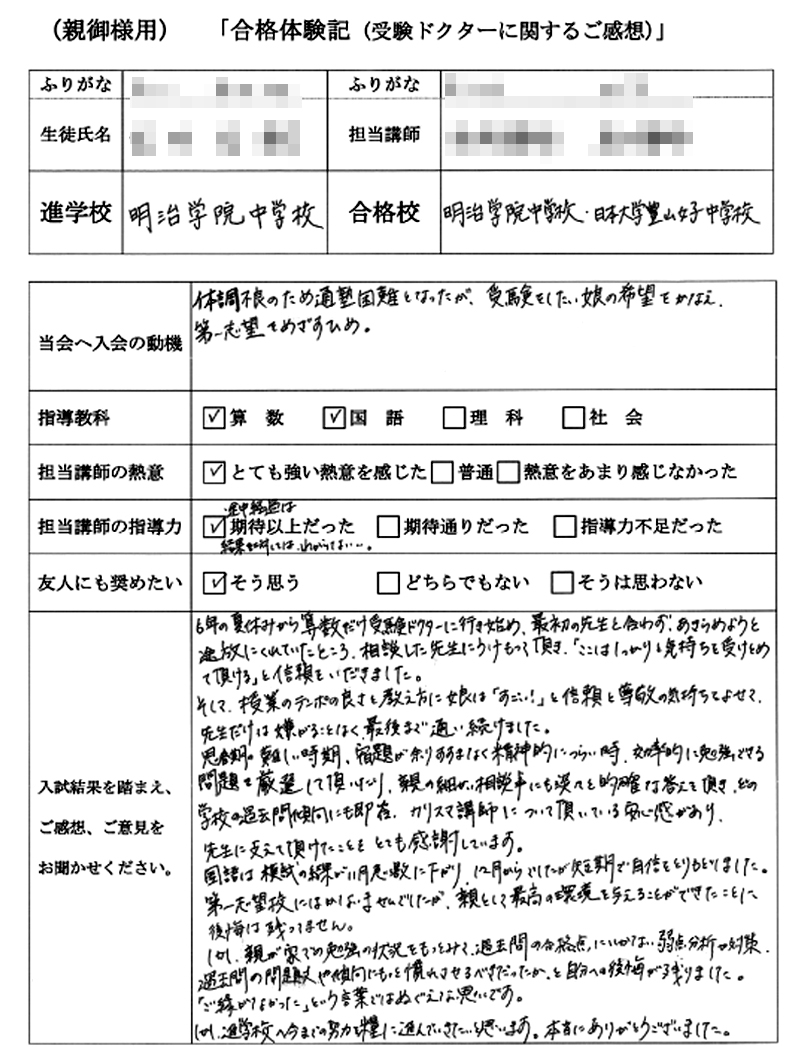 （親御様用）　「合格体験記（受験ドクターに関するご感想）」
ふりがな
ふりがな
生徒氏名
担当講師
進学校
明治学院中学校
合格校
明治学院中学校・日本大学豊山女子中学校
当会へ入会の動機
体調不良のため通塾困難となったが、受験をしたい娘の希望をかなえ、
第一志望をめざすため。
指導教科
☑算　数　☑国　語　☐理　科　☐社　会
担当講師の熱意
☑とても強い熱意を感じた☐普通☐熱意をあまり感じなかった
担当講師の指導力
途中経過は
☑期待以上だった　☐期待通りだった　☐指導力不足だった
結果に対しては、わからない…。
友人にも奨めたい
☑そう思う　☐どちらでもない　☐そうは思わない
入試結果を踏まえ、
ご感想、ご意見を
お聞かせください。
6年の夏休みから算数だけ受験ドクターに行き始め、最初の先生と合わず、あきらめようと
途方にくれていたところ、相談した先生にうけもって頂き、「ここはしっかりと気持ちを受けとめ
て頂ける」と信頼をいだきました。
そして、授業のテンポの良さと教え方に娘は「すごい！」と信頼と尊敬の気持ちをよせて、
先生だけは嫌がることはなく、最後まで通い続けました。
思春期の難しい時期、宿題が余りすすまなく精神的につらい時、効率的に勉強できる
問題を厳選して頂いたり、親の細かい相談事にも淡々と的確な答えを頂き、どの
学校の過去問傾向にも即答、カリスマ講師について頂いている安心感があり、
先生に支えて頂けたことをとても感謝しています。
国語は模試の結果が11月急激に下がり、12月からでしたが短期で自信をとりもどしました。
第一志望校にはかないませんでしたが、親として最高の環境を与えることができたことに
後悔は残ってません。
しかし、親が家での勉強の状況をもっとみて、過去問の合格点にいかない弱点分析や対策、
過去問の問題文や傾向にもっと慣れさせるべきだったか、と自分への後悔が残りました。
「ご縁がなかった」という言葉ではぬぐえない思いです。
しかし、進学校へ今までの努力を糧に進んでいきたいと思います。本当にありがとうございました。